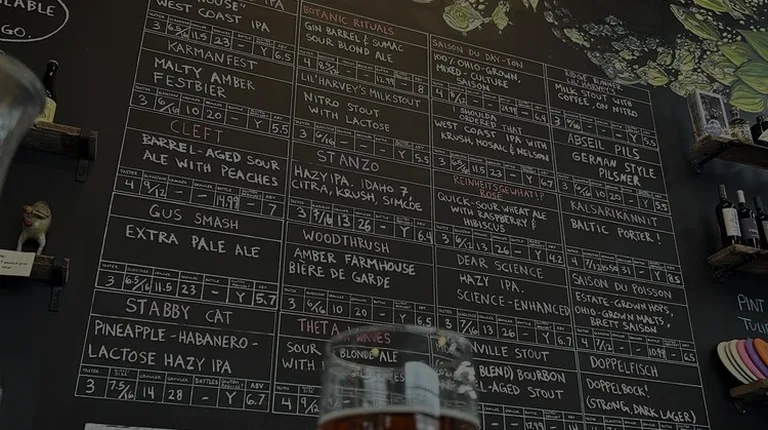 ABLE
GO.
HOUSE"
WEST COAST IPA
3 6.5/16 11.5 23 - Y 6.5
KARMANFEST
MALTY AMBER
FESTBIER
3 6/16 10 20 - Y 5.5
CLEFT
BARREL-AGED SOUR
ALE WITH PEACHES
4 9/12 - - 14.99 - 7
GUS SMASH
EXTRA PALE ALE
3 6.5/16 11.5 23 - Y 5.7
STABBY CAT
PINEAPPLE-HABANERO-
LACTOSE HAZY IPA
3 7.5/16 14 28 - Y 6.7
BOTANIC RITUALS
GIN BARREL & SUMAC
SOUR BLOND ALE
LIL' HARVEY'S MILK STOUT
NITRO STOUT
WITH LACTOSE
3 6/16 - - - Y 5.5
STANZO
HAZY IPA. IDAHO 7,
CITRA, KRUSH, SIMCOE
3 7/16 13 26 - Y 6.4
WOODTHRUSH
AMBER FARMHOUSE
BIÈRE DE GARDE
3 6/16 10 20 - Y 6.5
THETA WAVES
SOUR BLOND ALE
WITH
4 9/12
SAISON DU DAY-TON
100% OHIO-GROWN,
MIXED-CULTURE
SAISON
I SHOULDA
ORDERED THAT
WEST COAST IPA WITH
KRUSH, MOSAIC & NELSON
3 6.5/16 11.5 23 - Y 6.7
REINHEITSGEWHAT!?
ROSÉ
QUICK-SOUR WHEAT ALE
WITH RASPBERRY &
HIBISCUS
3 6/12 13 26 - Y 4.2
DEAR SCIENCE
HAZY IPA.
SCIENCE-ENHANCED
3 7/16 13 26 - Y 6.7
NVILLE STOUT
BLEND) BOURBON
EL-AGED STOUT
LIL' HARVEY'S
MILK STOUT WITH
COFFEE, ON NITRO
3 7/16 - - - Y 5.5
ABSEIL PILS
GERMAN STYLE
PILSNER
3 6/16 10 20 - Y 5.5
KALSARIKANNIT
BALTIC PORTER!
SAISON DU POISSON
ESTATE-GROWN HOPS,
OHIO-GROWN MALTS,
BRETT SAISON
DOPPELFISCH
DOPPELBOCK!
(STRONG, DARK LAGER)
PINT
TULI